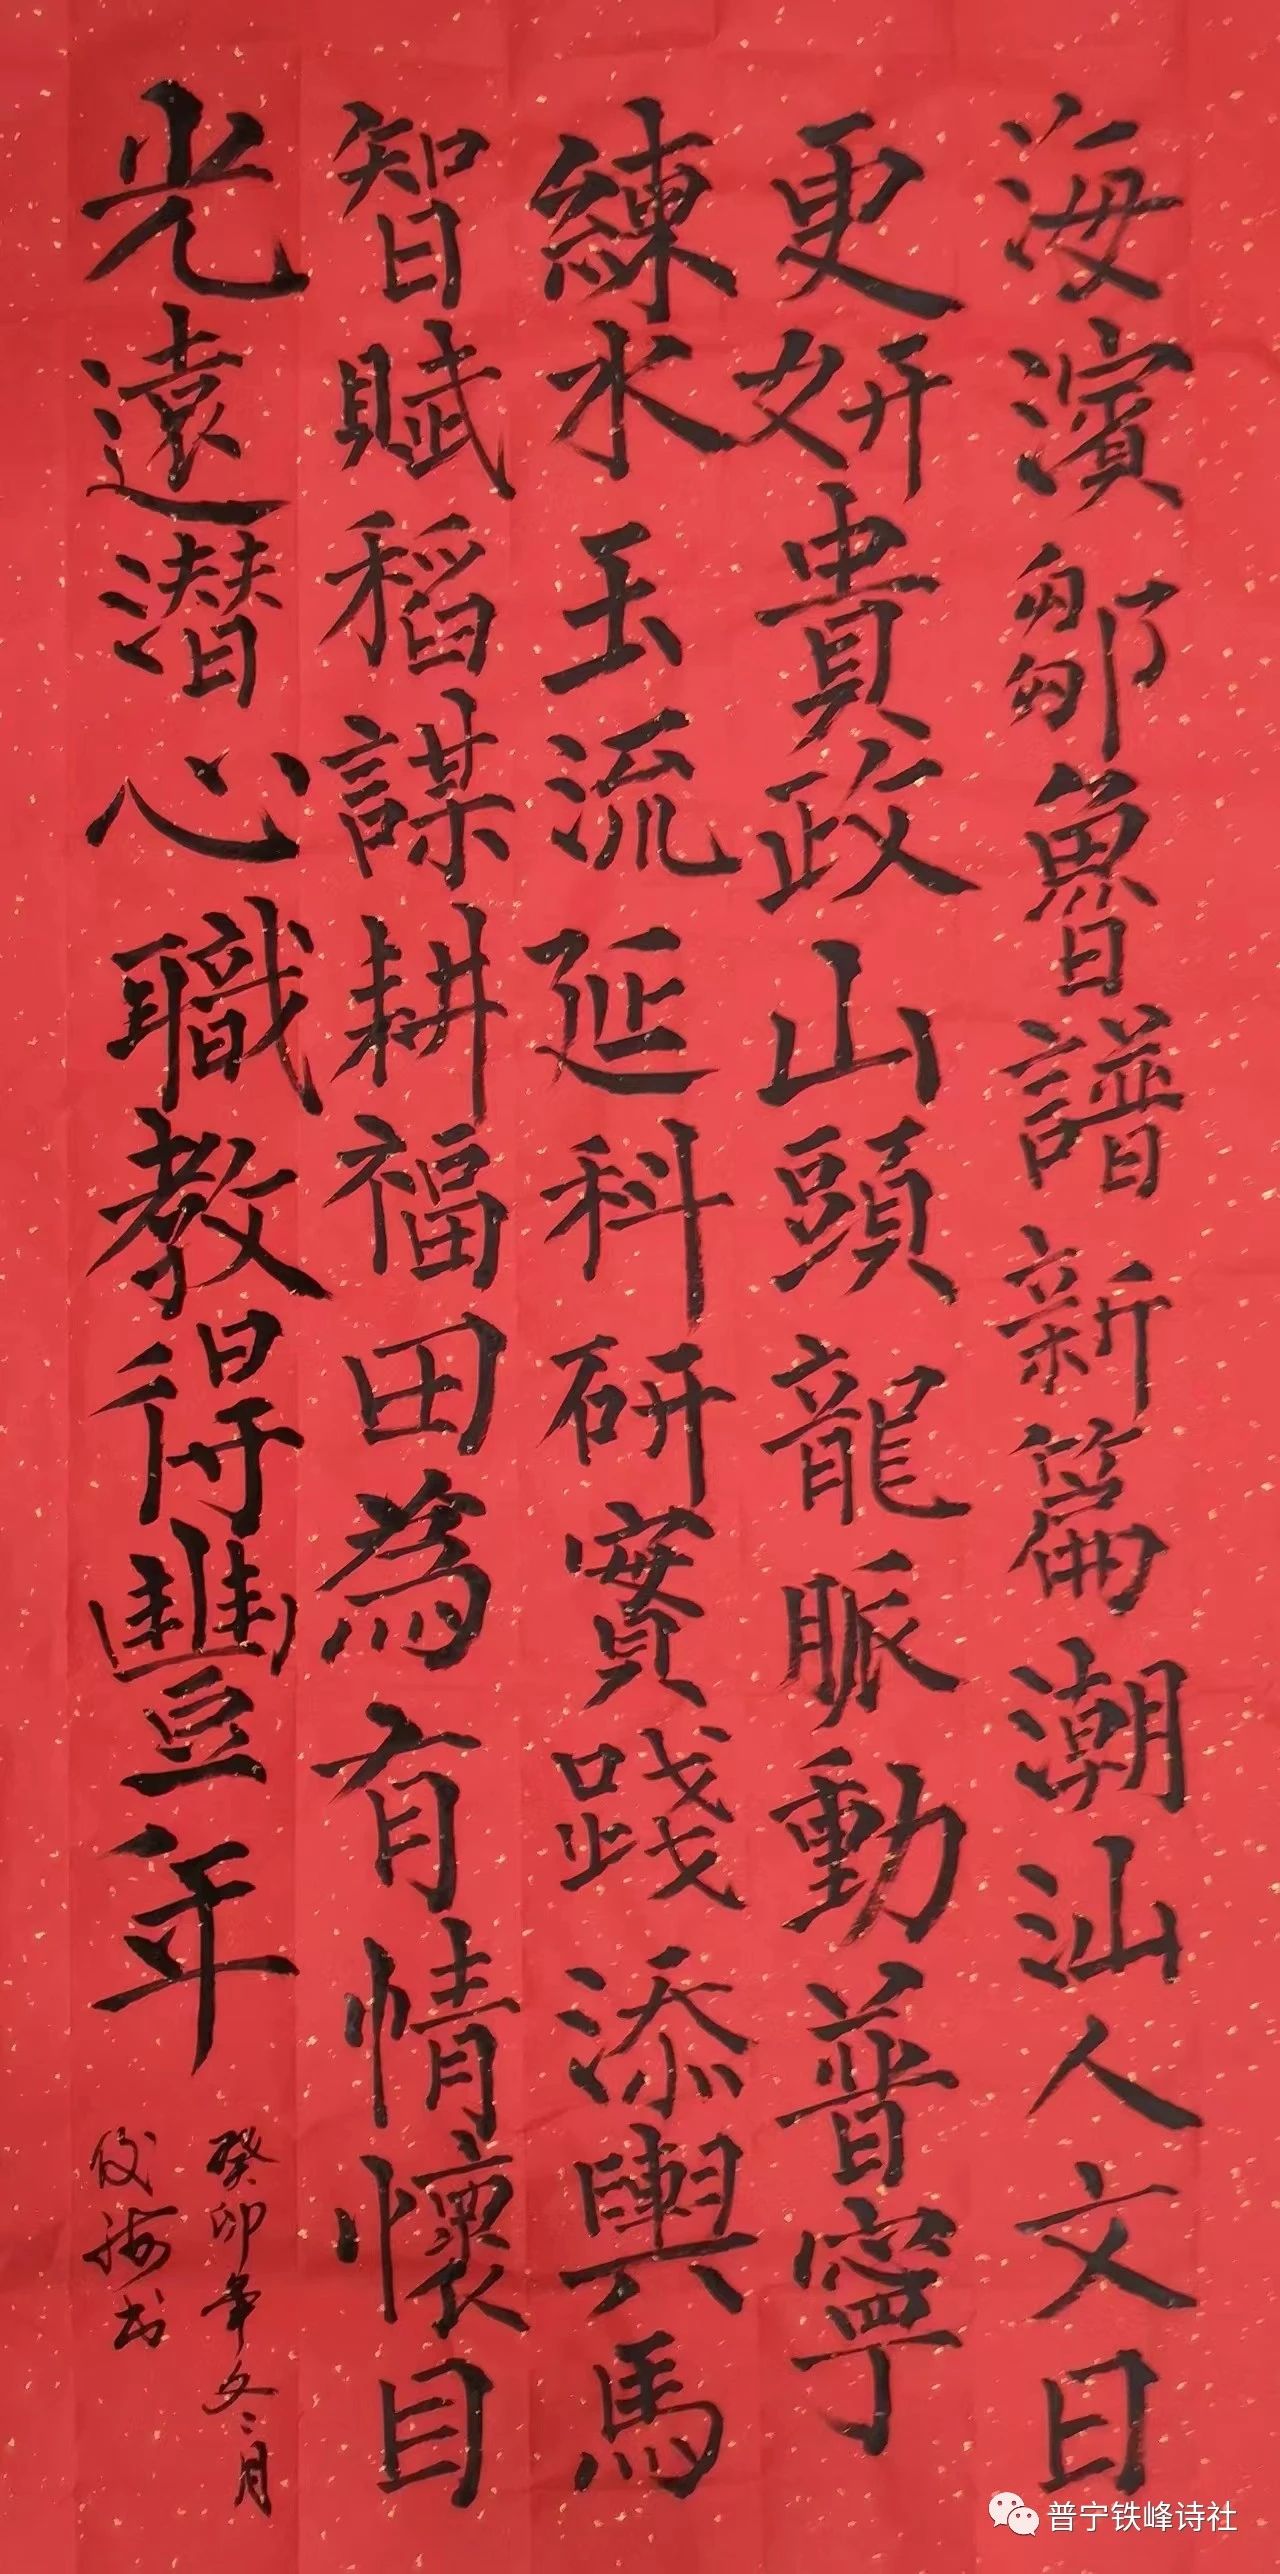 海濱鄒魯譜新篇潮汕人文日
更妍貴政山頭龍脈動普寧
練水玉流延科研實踐添輿馬
智賦稻謀耕福田為有情懷目
光遠潜心職教得豐年
癸卯年冬月
海书
普宁铁峰诗社